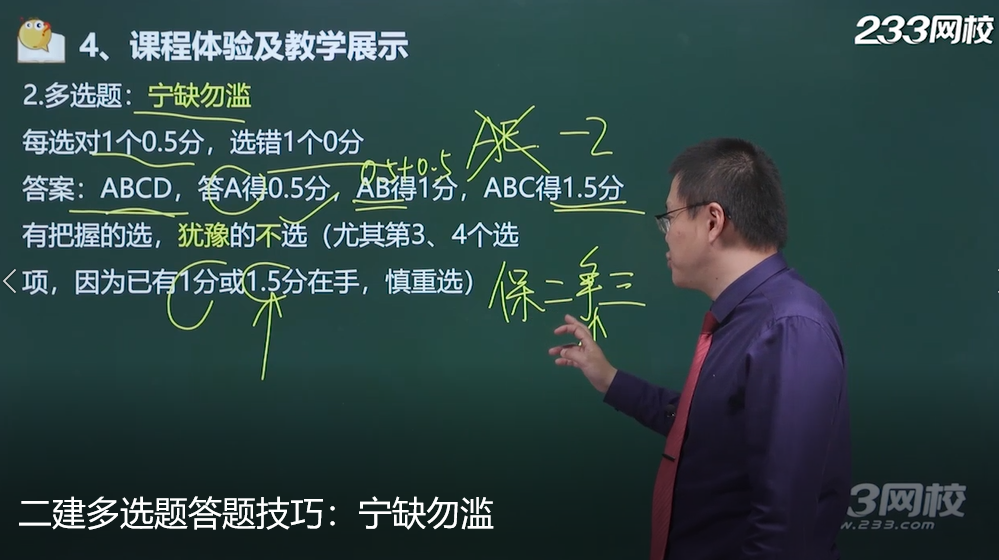 233网校
4、课程体验及教学展示
2.多选题：宁缺勿滥
每选对1个0.5分，选错1个0分
AE -2
0.5+0.5
答案：ABCD，答A得0.5分，AB得1分，ABC得1.5分
有把握的选，犹豫的不选（尤其第3、4个选
项，因为已有1分或1.5分在手，慎重选）
保二争三
3网校
w.233.com
二建多选题答题技巧：宁缺勿滥